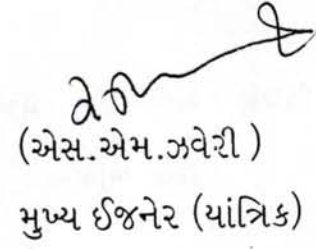 (એસ.એમ.ઝવેરી)
મુખ્ય ઈજનેર (યાંત્રિક)